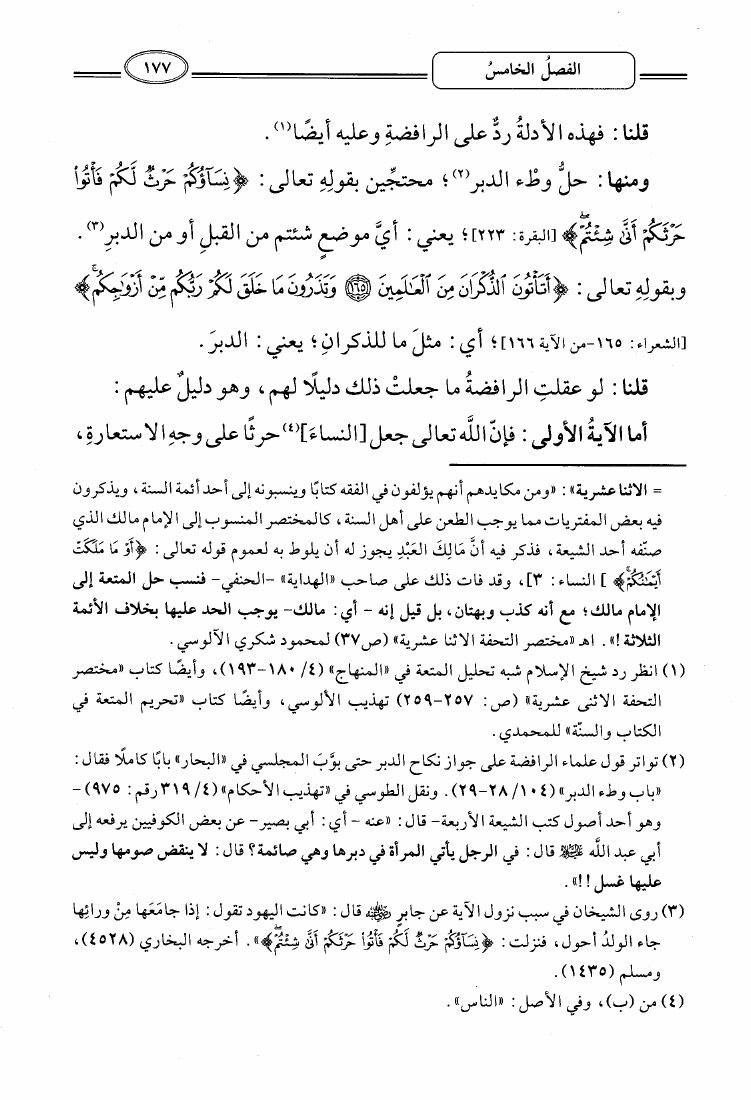 الفصلُ الخامسُ
١٧٧
قلنا: فهذه الأدلةُ ردٌّ على الرافضةِ وعليه أيضًا(١).
ومنها: حلُّ وطْء الدبر(٢)؛ محتجِّين بقولِهِ تعالى: ﴿نِسَآؤُكُمْ حَرْثٌ لَّكُمْ فَأْتُوا۟
حَرْثَكُمْ أَنَّىٰ شِئْتُمْ﴾ [البقرة: ٢٢٣]؛ يعني: أيَّ موضعٍ شئتم من القبلِ أو من الدبرِ(٣).
وبقولِهِ تعالى: ﴿أَتَأْتُونَ ٱلذُّكْرَانَ مِنَ ٱلْعَـٰلَمِينَ ١٦٥ وَتَذَرُونَ مَا خَلَقَ لَكُمْ رَبُّكُم مِّنْ أَزْوَٰجِكُم﴾
[الشعراء: ١٦٥-من الآية ١٦٦]؛ أي: مثلَ ما للذكرانِ؛ يعني: الدبرَ.
قلنا: لو عقلتِ الرافضةُ ما جعلتْ ذلك دليلًا لهم، وهو دليلٌ عليهم:
أما الآيةُ الأولى: فإنّ اللَّه تعالى جعل [النساءَ](٤) حرثًا على وجهِ الاستعارةِ،
= الاثنا عشرية»: «ومن مكايدهم أنهم يؤلفون في الفقه كتابًا وينسبونه إلى أحد أئمة السنة، ويذكرون
فيه بعض المفتريات مما يوجب الطعن على أهل السنة، كالمختصر المنسوب إلى الإمام مالك الذي
صنّفه أحد الشيعة، فذكر فيه أنَّ مَالِكَ العَبْدِ يجوز له أن يلوط به لعموم قوله تعالى: ﴿أَوْ مَا مَلَكَتْ
أَيْمَـٰنُكُمْ﴾ ] النساء: ٣]، وقد فات ذلك على صاحب «الهداية» -الحنفي- فنسب حل المتعة إلى
الإمام مالك؛ مع أنه كذب وبهتان، بل قيل إنه - أي: مالك- يوجب الحد عليها بخلاف الأئمة
الثلاثة!». اهـ «مختصر التحفة الاثنا عشرية» (ص٣٧) لمحمود شكري الآلوسي.
(١) انظر رد شيخ الإسلام شبه تحليل المتعة في «المنهاج» (٤/ ١٨٠-١٩٣)، وأيضًا كتاب «مختصر
التحفة الاثنى عشرية» (ص: ٢٥٧-٢٥٩) تهذيب الألوسي، وأيضًا كتاب «تحريم المتعة في
الكتاب والسنّة» للمحمدي.
(٢) تواتر قول علماء الرافضة على جواز نكاح الدبر حتى بوَّبَ المجلسي في «البحار» بابًا كاملًا فقال:
«باب وطء الدبر» (١٠٤/ ٢٨-٢٩). ونقل الطوسي في «تهذيب الأحكام» (٤/ ٣١٩ رقم: ٩٧٥) -
وهو أحد أصول كتب الشيعة الأربعة- قال: «عنه - أي: أبي بصير- عن بعض الكوفيين يرفعه إلى
أبي عبد اللَّه ﷺ قال: في الرجل يأتي المرأة في دبرها وهي صائمة؟ قال: لا ينقض صومها وليس
عليها غسل!!».
(٣) روى الشيخان في سبب نزول الآية عن جابرٍ قال: «كانت اليهود تقول: إذا جامَعَها مِنْ ورائِها
جاء الولدُ أحول، فنزلت: ﴿نِسَآؤُكُمْ حَرْثٌ لَّكُمْ فَأْتُوا۟ حَرْثَكُمْ أَنَّىٰ شِئْتُمْ﴾». أخرجه البخاري (٤٥٢٨)،
ومسلم (١٤٣٥).
(٤) من (ب)، وفي الأصل: «الناس».